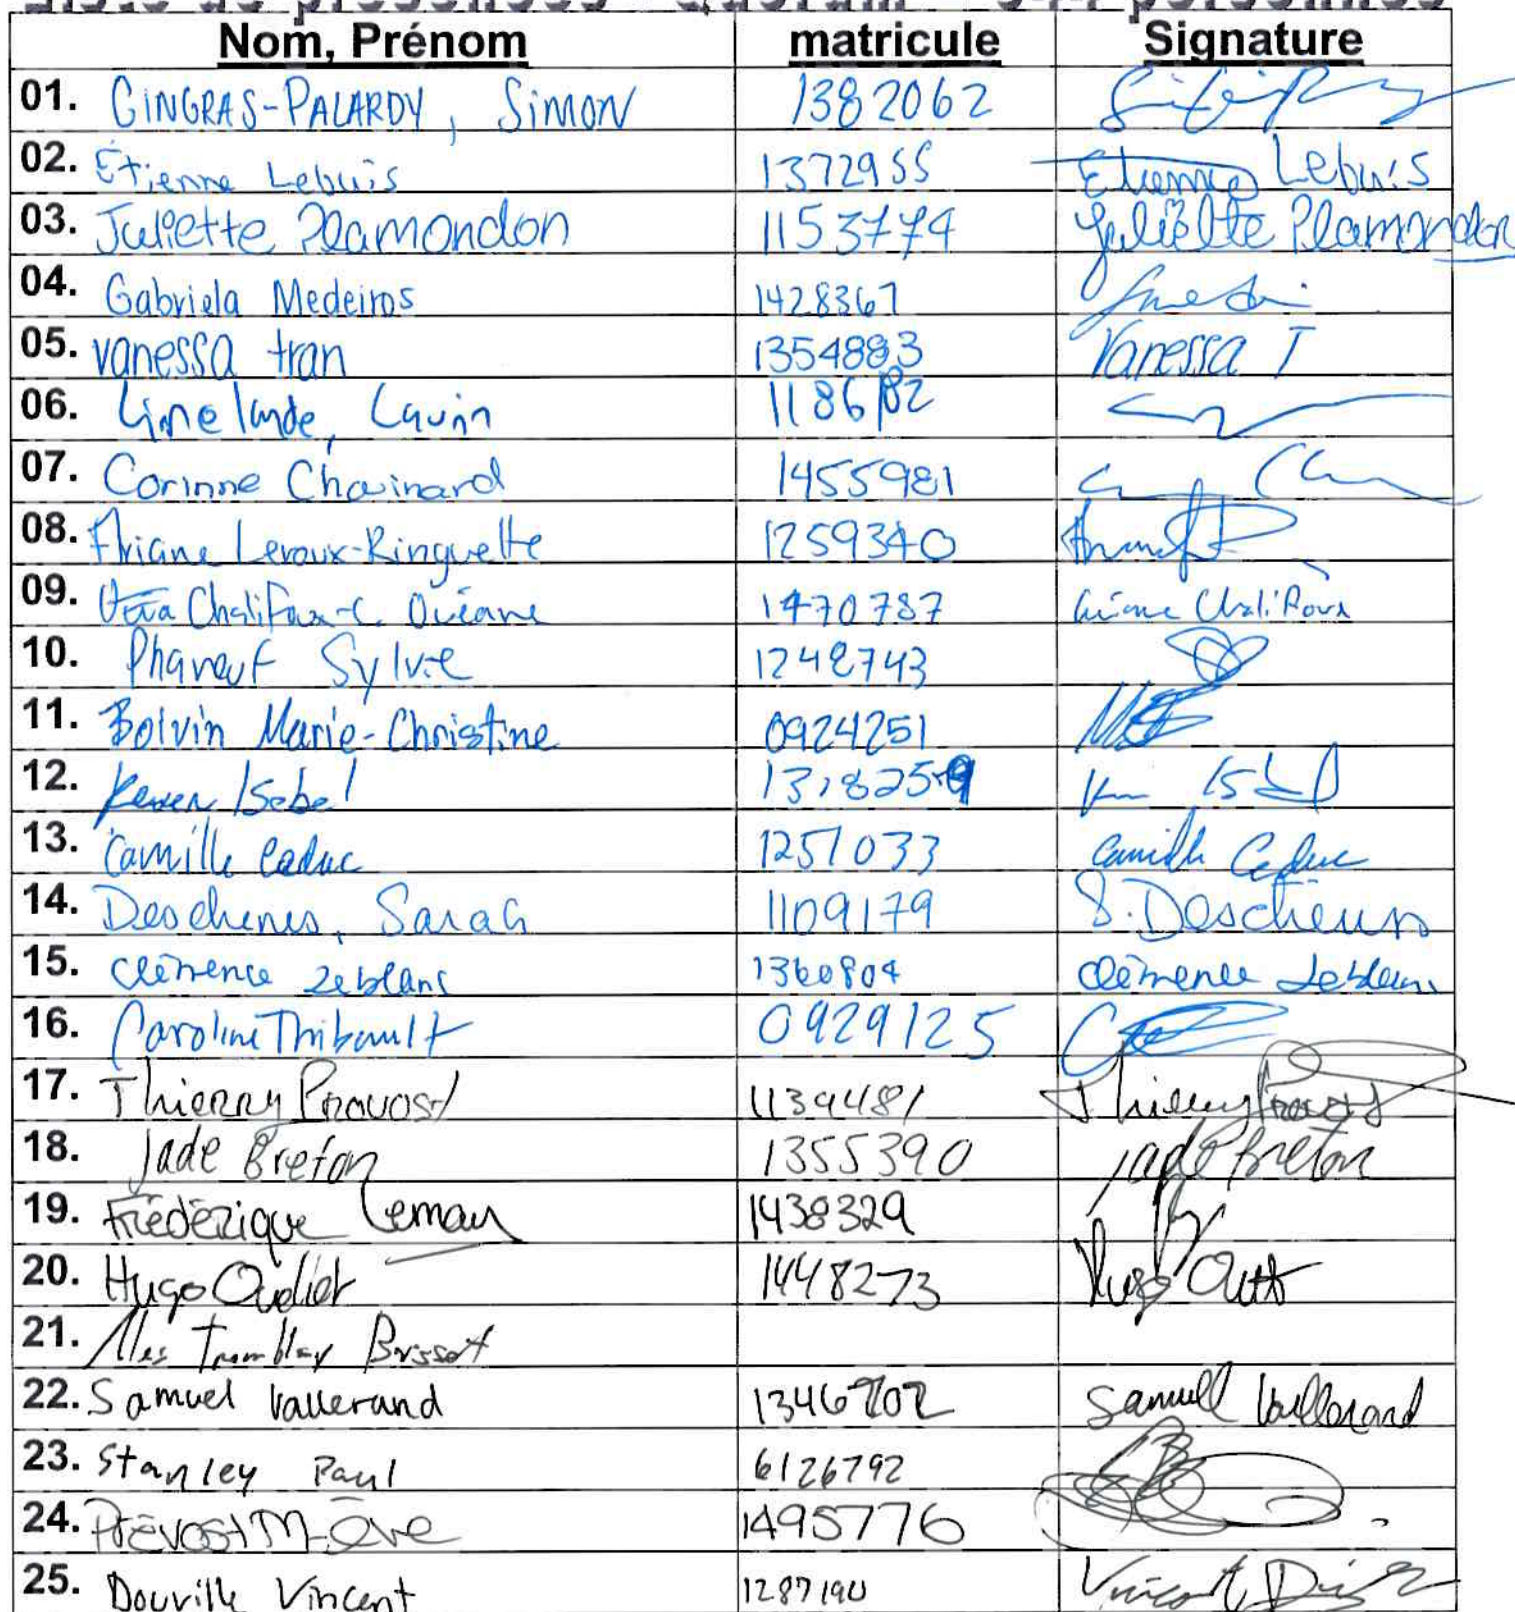 Liste de présences - Quorum = 344 personnes
Nom, Prénom matricule Signature
01. GINGRAS-PALARDY, SIMON 1382062
02. Étienne Lebuis 1372955 Etienne Lebuis
03. Juliette Plamondon 1153774 Juliette Plamondon
04. Gabriela Medeiros 1428367
05. vanessa tran 1354883 Vanessa T
06. 1186
07. Corinne Chouinard 1455981
08. Ariane Leroux-Ringuette 1259340
09. Chalifoux-C. Océane 1470787 Chalifoux
10. Phaneuf Sylvie 1248743
11. Boivin Marie-Christine 0924251
12. Keven Isabel 1318259
13. Camille Caduc 1251033 Camille Caduc
14. Deschenes, Sarah 1109179 S. Deschenes
15. Clémence Leblanc 1360804 Clémence Leblanc
16. Caroline Thibault 0929125
17. Thierry Provost 1139481 Thierry Provost
18. Jade Breton 1355390 jade Breton
19. Frédérique Lemay 1438329
20. Hugo Ouellet 1448273 Hugo
21. Tremblay
22. Samuel Vallerand 1346702 Samuel Vallerand
23. Stanley Paul 6126792
24. Prévost M-Ève 1495776
25. Douville Vincent 1287190 Vincent